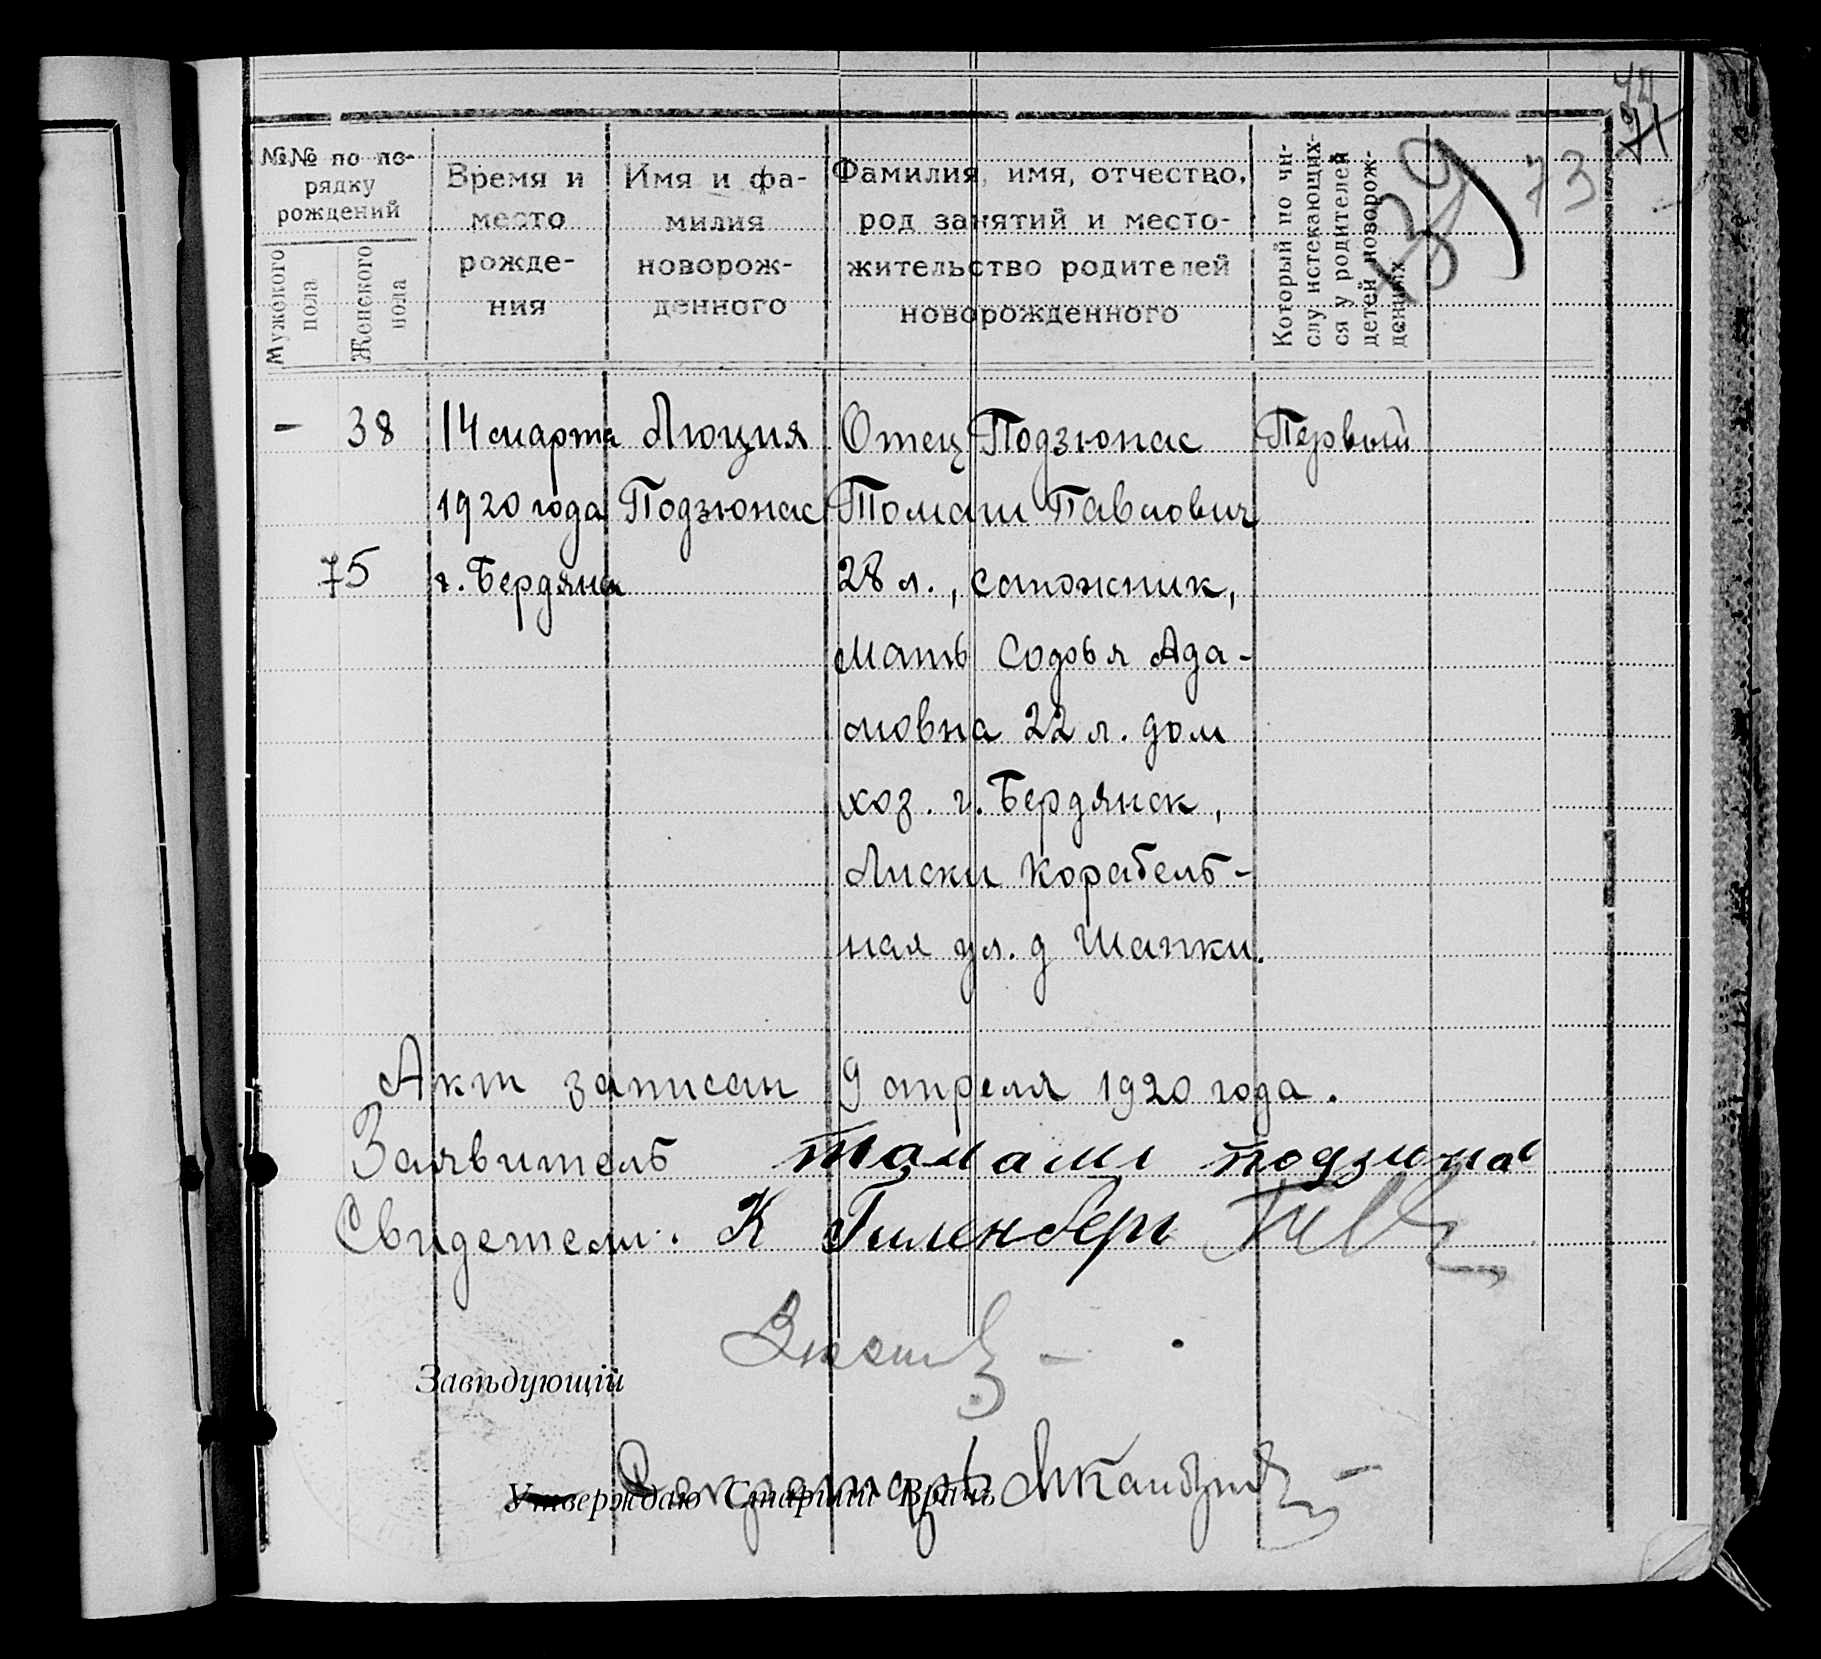 74
73
39
№№ по по-
рядку
рождений
Мужеского
пола
Женского
пола
Время и
место
рожде-
ния
Имя и фа-
милия
новорож-
денного
Фамилия, имя, отчество,
род занятий и место-
жительство родителей
новорожденного
Который по чи-
слу истекающих-
ся у родителей
детей новорож-
денных
– 38 14 марта Люция Отец Подзюнас Первый
1920 года Подзюнас Томаш Павлович
75 г. Бердянск 28 л., сапожник,
Мать Софья Ада-
мовна 22 л. дом
хоз. г. Бердянск,
Лиски Корабель-
ная ул. д Шапки.
Акт записан 9 апреля 1920 года.
Заявитель томаш подзюнас
Свидетели: К Гиленберг
Завѣдующій
Утверждаю Старшій Врачъ
Секретарь